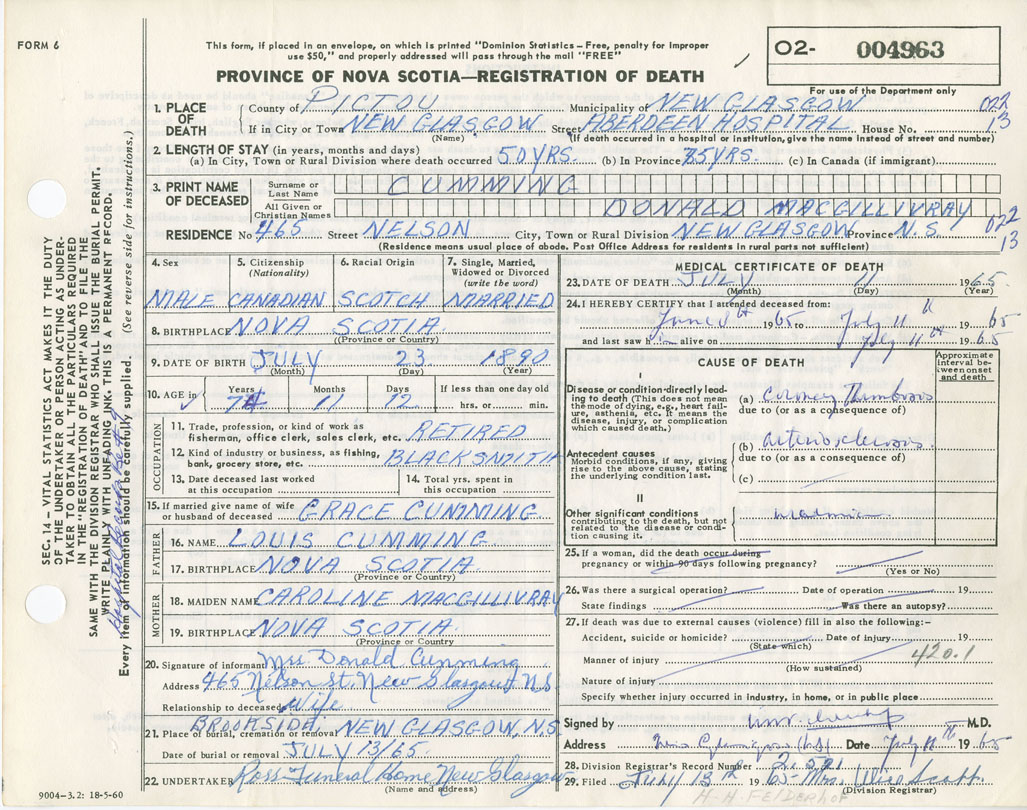 FORM 6
This form, if placed in an envelope, on which is printed "Dominion Statistics – Free, penalty for improper
use $50," and properly addressed will pass through the mail "FREE"
PROVINCE OF NOVA SCOTIA—REGISTRATION OF DEATH
O2- 004963
For use of the Department only
1. PLACE OF DEATH
County of PICTOU Municipality of NEW GLASGOW 022
If in City or Town NEW GLASGOW Street ABERDEEN HOSPITAL House No. 13
(Name) (If death occurred in a hospital or institution, give the name instead of street and number)
2. LENGTH OF STAY (in years, months and days)
(a) In City, Town or Rural Division where death occurred 50 YRS. (b) In Province 75 YRS. (c) In Canada (if immigrant)
3. PRINT NAME OF DECEASED
Surname or Last Name CUMMING
All Given or Christian Names DONALD MACGILLIVRAY
RESIDENCE No 465 Street NELSON City, Town or Rural Division NEW GLASGOW Province N.S. 022 13
(Residence means usual place of abode. Post Office Address for residents in rural parts not sufficient)
4. Sex MALE
5. Citizenship (Nationality) CANADIAN
6. Racial Origin SCOTCH
7. Single, Married, Widowed or Divorced (write the word) MARRIED
8. BIRTHPLACE NOVA SCOTIA.
(Province or Country)
9. DATE OF BIRTH JULY 23 1890
(Month) (Day) (Year)
10. AGE in Years 74 Months 11 Days 12 If less than one day old hrs. or min.
OCCUPATION
11. Trade, profession, or kind of work as fisherman, office clerk, sales clerk, etc. RETIRED
12. Kind of industry or business, as fishing, bank, grocery store, etc. BLACKSMITH
13. Date deceased last worked at this occupation
14. Total yrs. spent in this occupation
15. If married give name of wife or husband of deceased GRACE CUMMING
FATHER
16. NAME LOUIS CUMMING
17. BIRTHPLACE NOVA SCOTIA.
(Province or Country)
MOTHER
18. MAIDEN NAME CAROLINE MACGILLIVRAY
19. BIRTHPLACE NOVA SCOTIA.
(Province or Country
20. Signature of informant Mrs Donald Cumming
Address 465 Nelson St. New Glasgow N.S
Relationship to deceased Wife
BROOKSIDE.
21. Place of burial, cremation or removal NEW GLASGOW, N.S
Date of burial or removal JULY 13/65.
22. UNDERTAKER Ross Funeral Home New Glasgow
(Name and address)
9004-3.2: 18-5-60
MEDICAL CERTIFICATE OF DEATH
23. DATE OF DEATH JULY 11 1965
(Month) (Day) (Year)
24. I HEREBY CERTIFY that I attended deceased from:
June 1965 to July 11 1965
and last saw him alive on July 11th 1965
CAUSE OF DEATH
Approximate interval between onset and death
I
Disease or condition directly leading to death (This does not mean the mode of dying, e.g., heart failure, asthenia, etc. It means the disease, injury, or complication which caused death.)
(a) Coronary Thrombosis
due to (or as a consequence of)
Antecedent causes
Morbid conditions, if any, giving rise to the above cause, stating the underlying condition last.
(b) arteriosclerosis
due to (or as a consequence of)
(c)
II
Other significant conditions
contributing to the death, but not related to the disease or condition causing it.
25. If a woman, did the death occur during pregnancy or within 90 days following pregnancy?
(Yes or No)
26. Was there a surgical operation? Date of operation 19
State findings Was there an autopsy?
27. If death was due to external causes (violence) fill in also the following:–
Accident, suicide or homicide? Date of injury 19
(State which)
Manner of injury 420.1
(How sustained)
Nature of injury
Specify whether injury occurred in industry, in home, or in public place
Signed by M.D.
Address Date July 11th 1965
28. Division Registrar's Record Number
29. Filed July 13th 1965 Mrs. Alice Scott.
(Division Registrar)
H.H. FELDERHOF
SEC. 14 – VITAL STATISTICS ACT MAKES IT THE DUTY
OF THE UNDERTAKER OR PERSON ACTING AS UNDER-
TAKER TO OBTAIN ALL THE PARTICULARS REQUIRED
IN THE "REGISTRATION OF DEATH" AND TO FILE THE
SAME WITH THE DIVISION REGISTRAR WHO SHALL ISSUE THE BURIAL PERMIT.
WRITE PLAINLY WITH UNFADING INK. THIS IS A PERMANENT RECORD.
Every item of information should be carefully supplied. (See reverse side for instructions.)